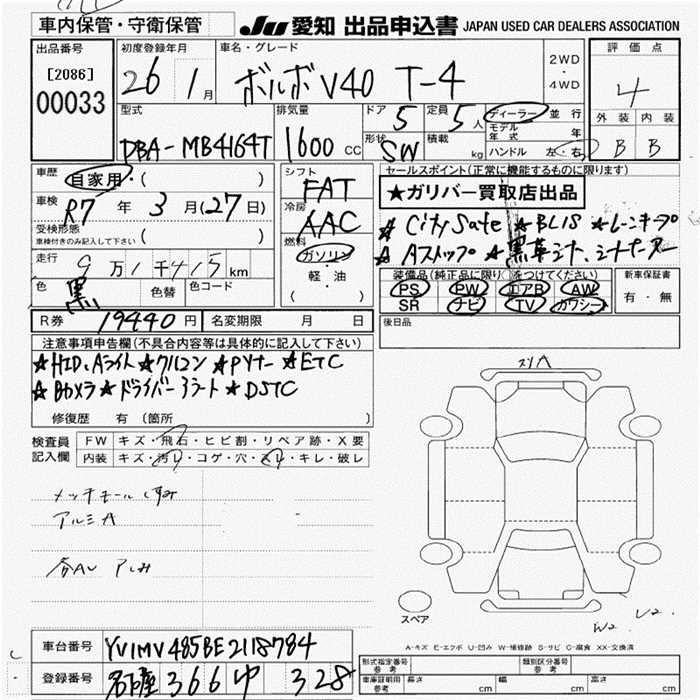 車内保管・守衛保管
JU 愛知 出品申込書 JAPAN USED CAR DEALERS ASSOCIATION
出品番号
[2086]
00033
初度登録年月
26 1月
車名・グレード
ボルボ V40 T-4
2WD
・
4WD
評価点
4
外装 内装
B B
型式
DBA-MB4164T
排気量
1600 cc
ドア
5
定員
5人
形状
SW
積載
kg
ディーラー 並行
モデル年式 年
ハンドル 左・右
車歴
自家用・( )
車検
R7年 3月(27日)
受検形態
車検付きのみ記入して下さい ( )
走行
9万1千415km
色
黒
色替
色コード
シフト
FAT
冷房
AAC
燃料
ガソリン
・
軽・油
( )
セールスポイント(正常に機能するものに限ります)
★ガリバー買取店出品
★ City Safe ★BLIS ★レーンキープ
★ Aストップ ★黒革シート、シートヒーター
装備品(純正品に限り○をつけてください)
PS PW エアB AW
SR ナビ TV カワシート
新車保証書
有・無
R券 19440円 名変期限 月 日
後日品
注意事項申告欄(不具合内容等は具体的に記入して下さい)
★HID、Aライト ★クルコン ★Pソナー ★ETC
★Bカメラ ★ドライバーアラート ★DSTC
修復歴 有 (箇所 )
検査員
記入欄
FW キズ・飛石・ヒビ割・リペア跡・X要
内装 キズ・汚れ・コゲ・穴・スレ・キレ・破レ
メッキモールくすみ
アルミA
各AU
スリA
スペア
W2 U2
A-キズ E-エクボ U-凹み W-補修跡 S-サビ C-腐食 XX-交換済
車台番号 YV1MV485BE2118784
登録番号 名古屋 366 ゆ 328
形式指定番号
参考
類別区分番号
参考
車庫証明用
参考
長さ cm 幅 cm 高さ cm